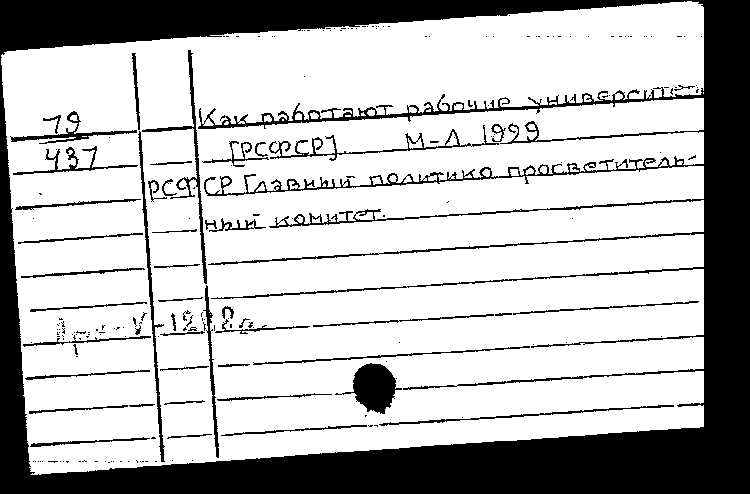 79 Как работают рабочие университеты
437 [РСФСР]. М-Л. 1999
РСФСР Главный политико просветитель-
ный комитет.
V-1288а